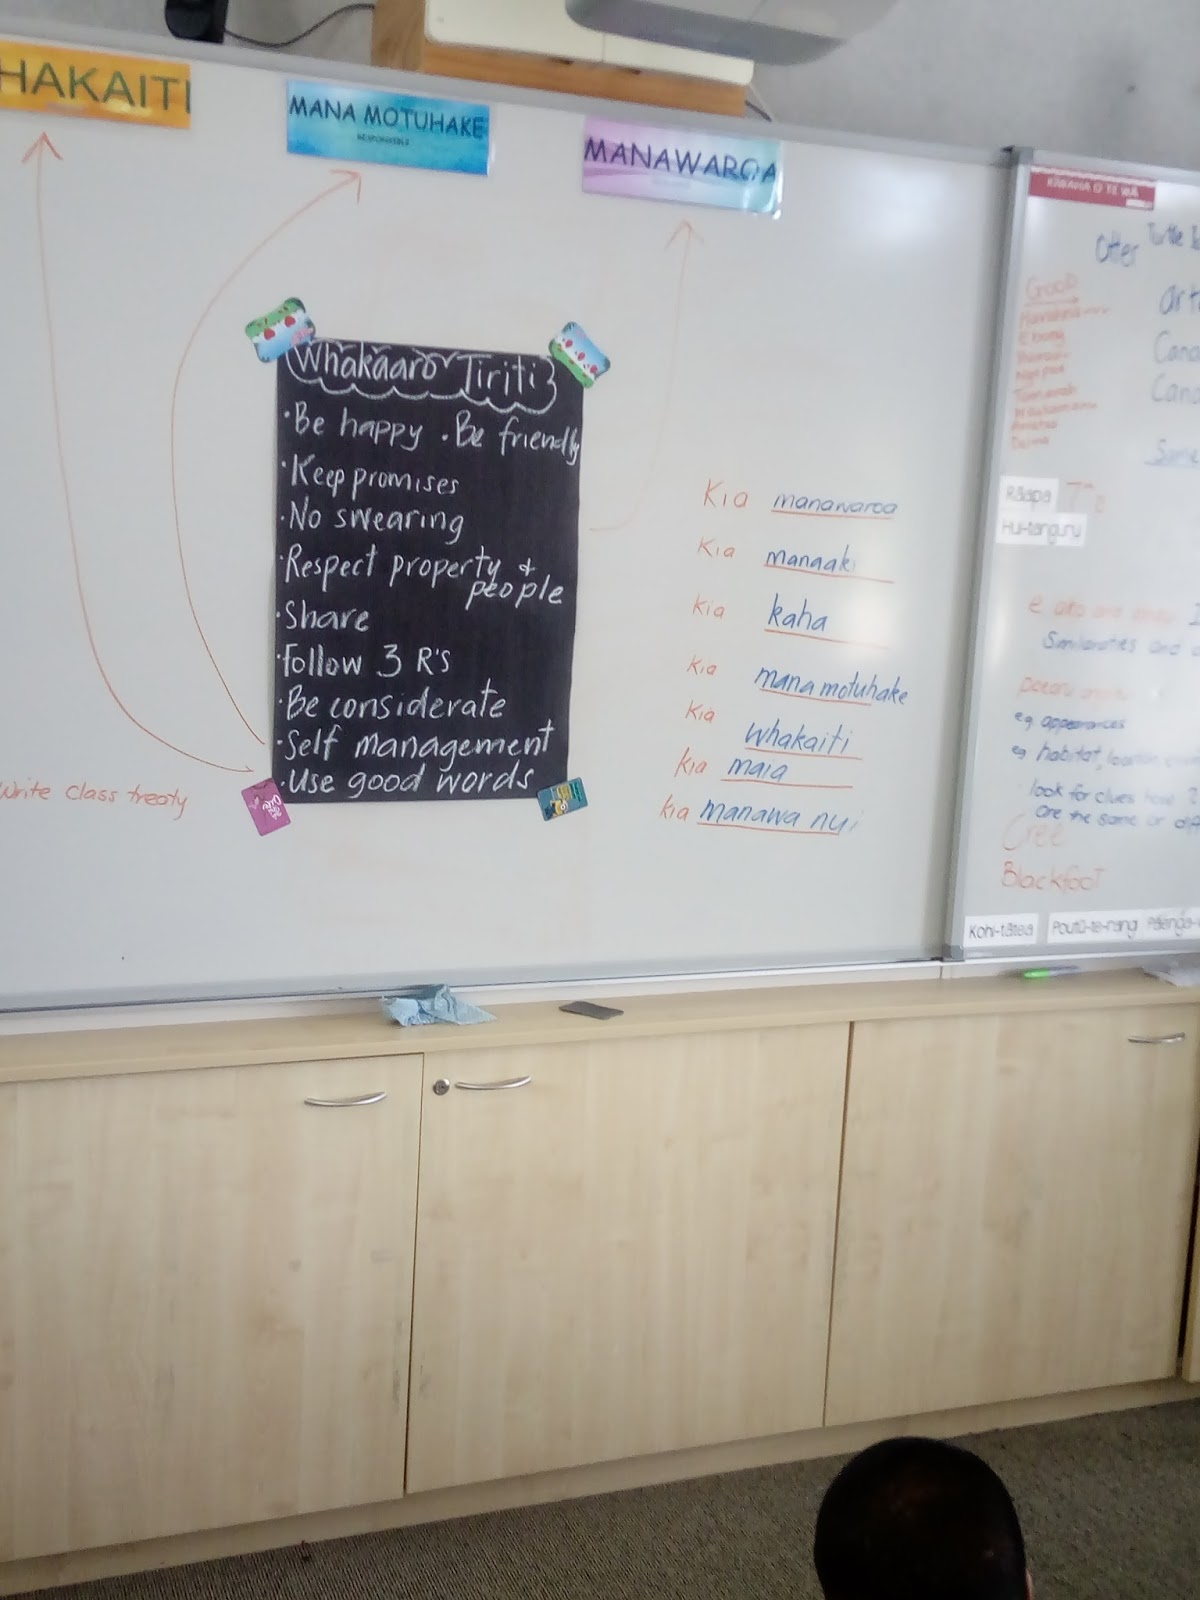 HAKAITI
MANA MOTUHAKE
RESPONSIBLE
MANAWAROA
Whakaaro Tiriti
·Be happy ·Be friendly
·Keep promises
·No swearing
·Respect property +
people
·Share
·Follow 3 R's
·Be considerate
·Self management
·Use good words
Write class treaty
Kia manawaroa
Kia manaaki
kia kaha
kia mana motuhake
kia whakaiti
kia maia
kia manawa nui
KĪWAHA O TE WĀ
Otter Turtle
Group
Rāapa
Hui-tanguru
Similarities and
eg appearances
eg habitat, location
look for clues how 2
are the same or diff
Cree
Blackfoot
Kohi-tātea Poutū-te-rangi